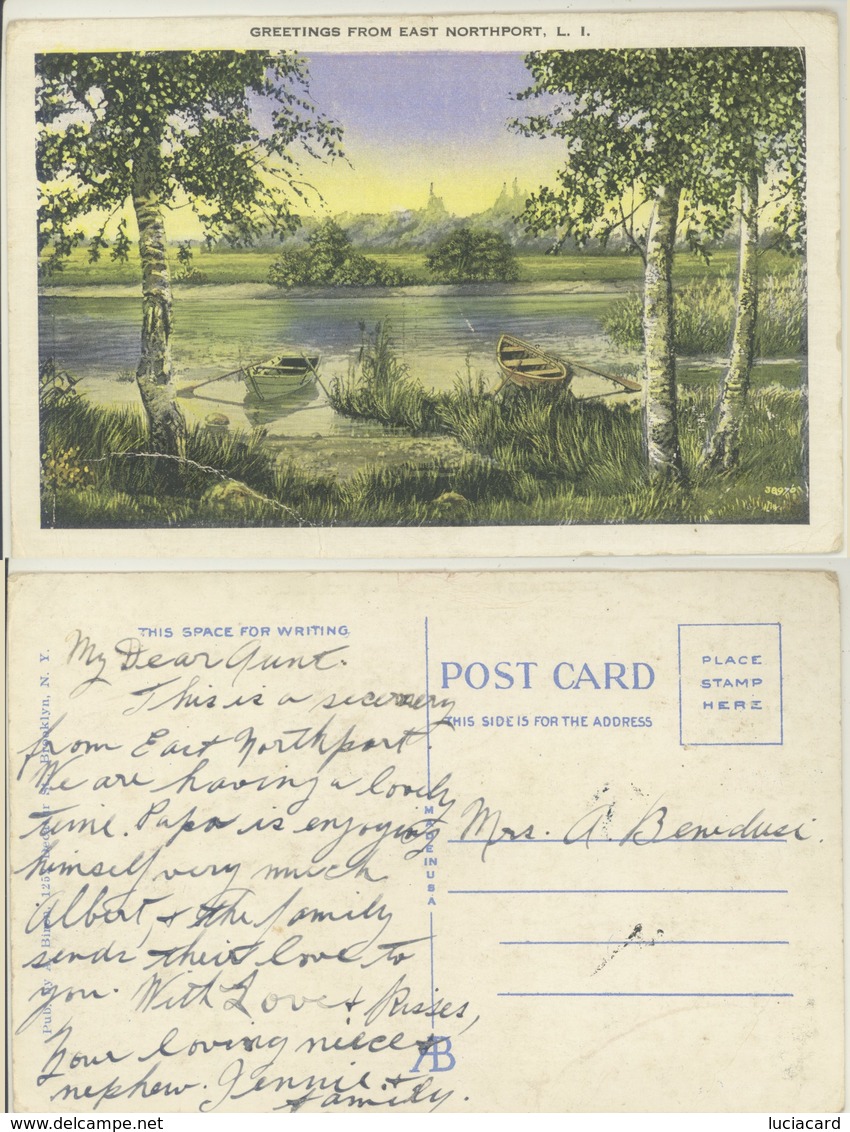 GREETINGS FROM EAST NORTHPORT, L. I.
38976
THIS SPACE FOR WRITING
My Dear Aunt.
This is a scenery
from East Northport.
We are having a lovely
time. Papa is enjoying
himself very much
Albert, & the family
sends their love to
you. With Love & Kisses,
Your loving niece &
nephew. Jennie &
family.
Pub. by A. Brooklyn, N. Y.
MADE IN USA
POST CARD
THIS SIDE IS FOR THE ADDRESS
PLACE
STAMP
HERE
Mrs. A. Benedusi.
AB
www.delcampe.net
luciacard